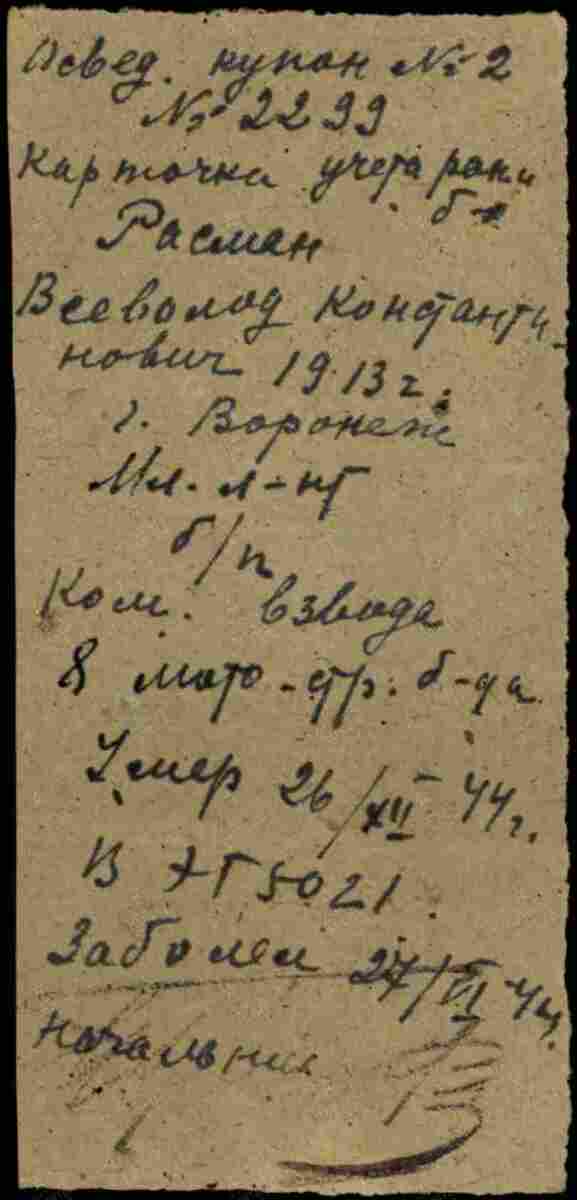 Освед. купон № 2
№ 2299
Карточка учета ран. и
б-х
Расман
Всеволод Константи-
нович 1913 г.
г. Воронеж
Мл. л-нт
б/п
Ком. взвода
8 мото-стр. б-да
Умер 26/XII 44 г.
В ЭГ 5021.
Заболел 27/VI-44.
начальник